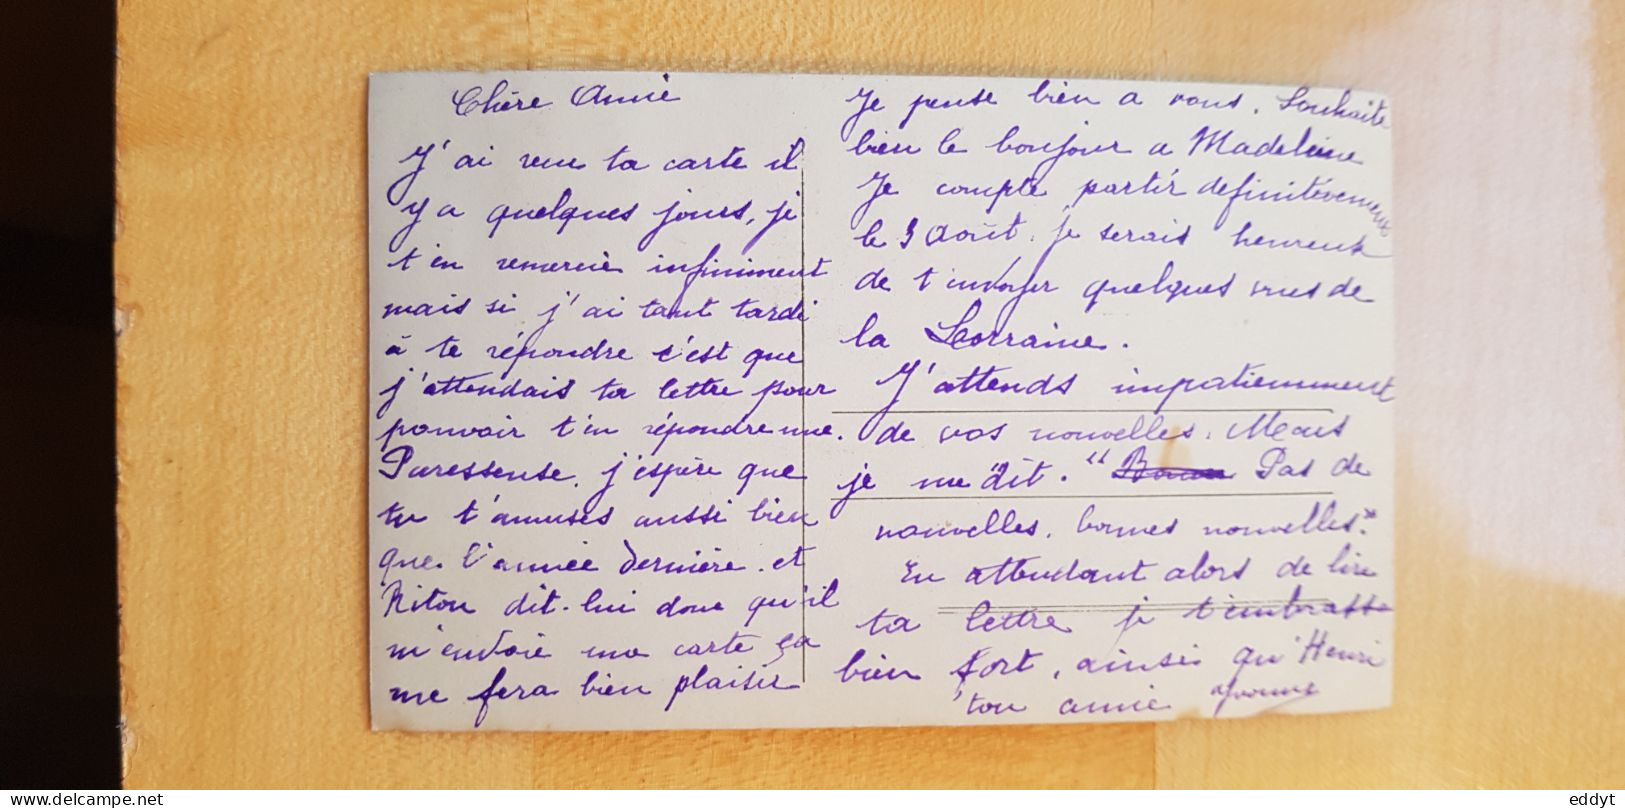 Chère Amie
J'ai reçu ta carte il
y a quelques jours, je
t'en remercie infiniment
mais si j'ai tant tardi
à te répondre c'est que
j'attendais ta lettre pour
pouvoir t'en répondre une.
Paressense. j'espère que
tu t'amuses aussi bien
que l'année dernière. et
Riton dit-lui donc qu'il
m'envoie une carte ça
me fera bien plaisir
Je pense bien a vous. Souhaite
bien le bonjour a Madeleine
Je compte partir definitévement
le 3 Août. je serais heureuse
de t'envoyer quelques vues de
la Lorraine.
J'attends impatiemment
de vos nouvelles. Mais
je me dit. " Pas de
nouvelles. bonnes nouvelles."
En attendant alors de lire
ta lettre je t'embrasse
bien fort, ainsi qu'Henri
ton amie Yvonne
eddyt